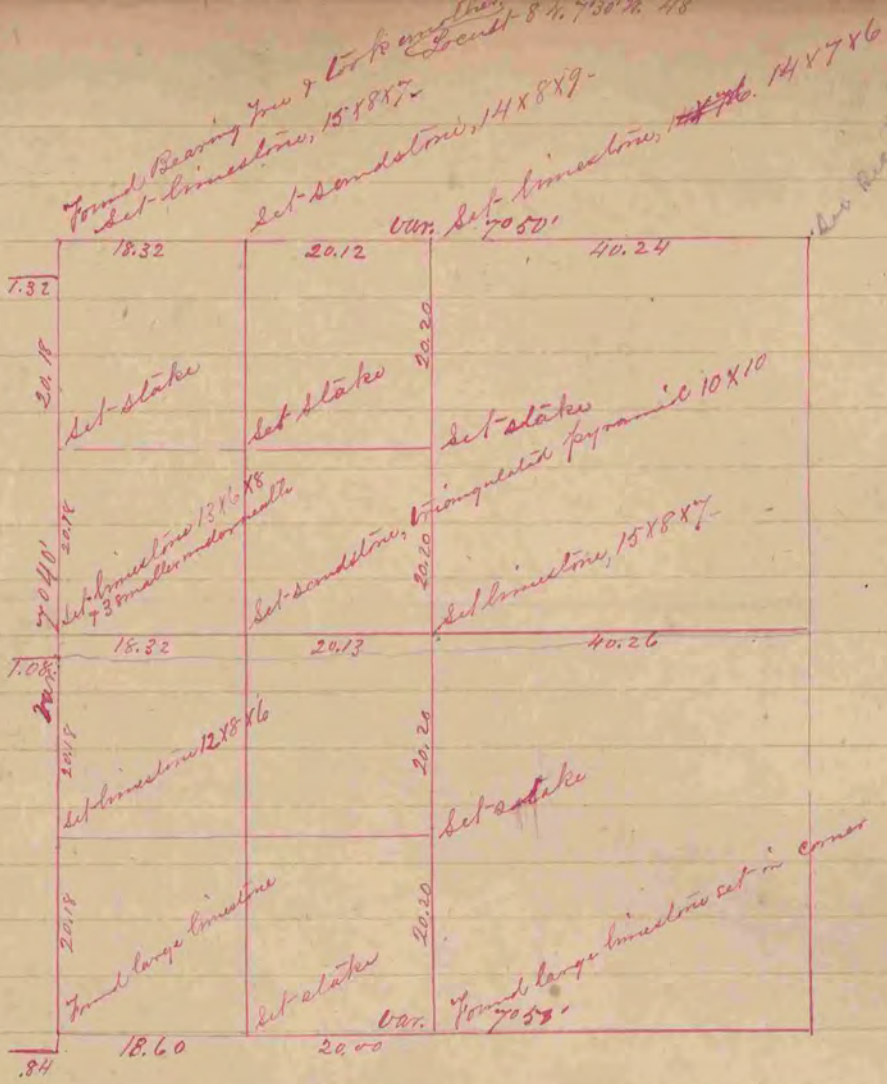 Found Bearing Tree & took another
Locust 8 N. 7°30' W. 48
Set limestone, 15X8X7-
Set sandstone, 14X8X9-
Set limestone, 14X7X6
Var. 7°50'
18.32 20.12 40.24
1.32
20.18 20.20
Set stake
Set stake
Set stake
Set limestone 13X6X8
+ 3 smaller underneath
Set sandstone, triangulated pyramid 10X10
Set limestone, 15X8X7-
20.18 20.20
7°40'
Var.
18.32 20.13 40.26
1.08
20.18 20.20
Set limestone 12X8X6
Set stake
20.18 20.20
Found large limestone
Set stake
Found large limestone set in corner
Var.
18.60 20.00
.84